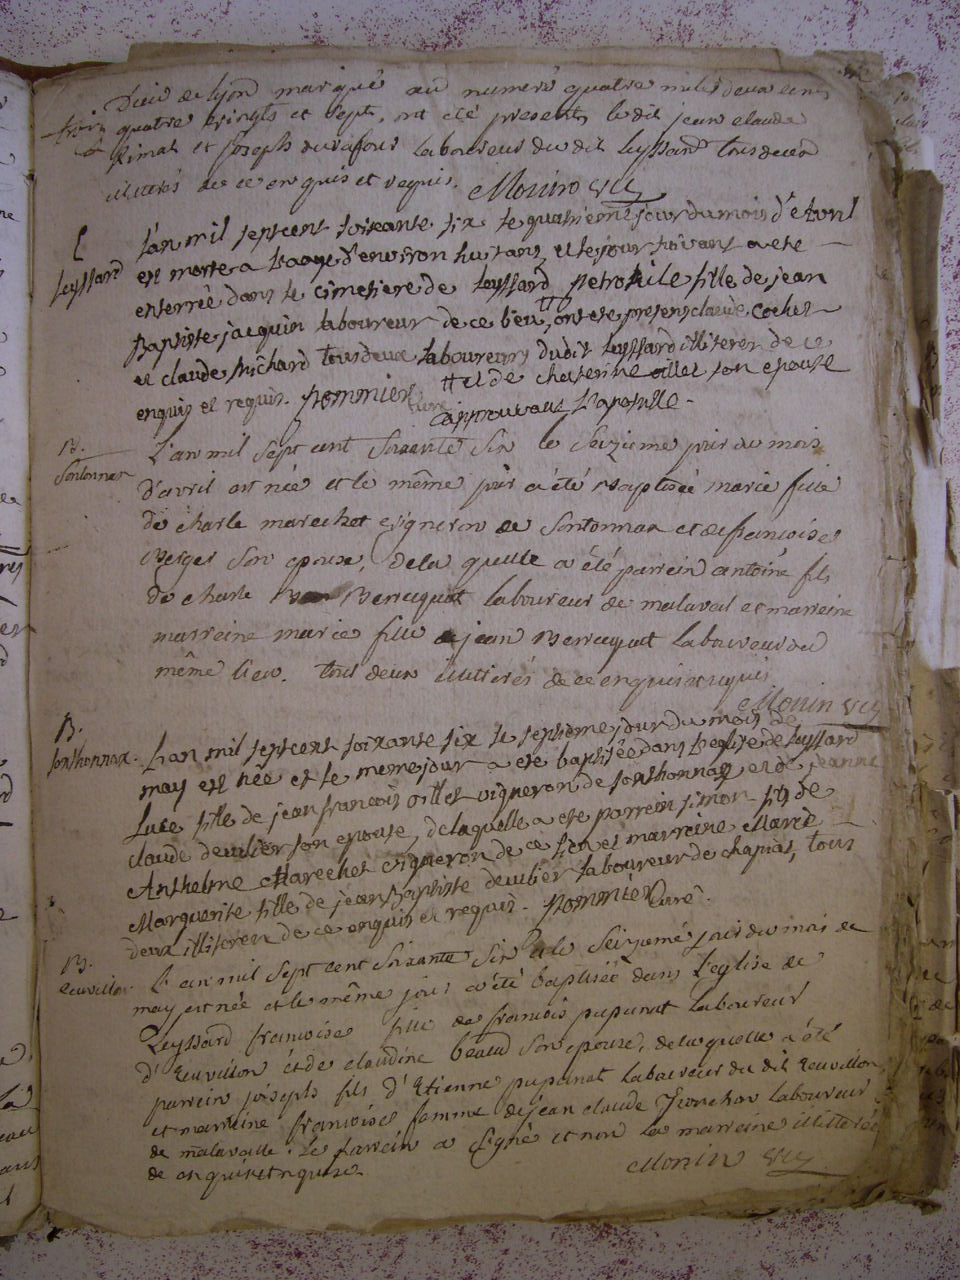 Dieu de lyon marqué au numero quatre mille deux cens
quatre vingts et sept, ont été presents ledit jean claude
et joseph laboureur du dit leyssard tous deux
illiterés de ce enquis et requis. Monin vic
E
leyssard
L'an mil septcent soixante six le quatrieme jour du mois d'Avril
est morte a l'aage d'environ huit ans, et le jour suivant a eté
enterrée dans le cimetiere de leyssard petronile fille de jean
Baptiste jacquin laboureur de ce lieu, # ont eté presens claude cochet
et claude michard tous deux laboureurs dudit leyssard illiterez de ce
enquis et requis. pommier curé # et de catherine oillet son epouse
approuvant l'apostille.
B.
Sontonnax
L'an mil sept cent soixante six le seizieme jour du mois
d'avril est née et le même jour a été baptisée marie fille
de charle marechet vigneron de Sontonnax et de francoise
Berger son epouse, de la quelle a été parrein antoine fils
de charle Berruquat laboureur de malaval et marreine
marreine marie fille de jean Berruquat laboureur du
même lieu. tous deux illiterés de ce enquis et requis
Monin vic
B.
sonthonnax.
L'an mil septcent soixante six le septieme jour du mois de
may est née et le meme jour a eté baptisée dans l'eglise de leyssard
Luce fille de jean francois oillet vigneron de sonthonnax et de jeanne
claude deulier son epouse, de laquelle a eté parrein simon fils de
Anthelme Marechet vigneron de ce lieu et marreine Marie
Marguerite fille de jean Baptiste deulier laboureur de chapiat, tous
deux illiterez de ce enquis et requis. pommier curé.
B.
L'an mil sept cent soixante six et le seizieme jour du mois de
may est née et le même jour a été baptisée dans l'eglise de
Leyssard francoise fille de francois pupunat laboureur
d' et de claudine beaud son epouse, de laquelle a été
parrein joseph fils d'Etienne pupunat laboureur du dit
et marreine francoise femme de jean claude laboureur
de malavalle. le parrein a signé et non la marreine illiterée
de ce enquise et requise
Monin vic